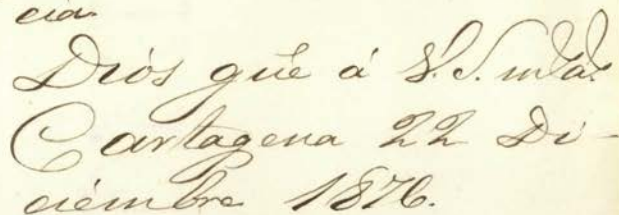 cia
Dios güe á V.S. m.s a.s
Cartagena 22 Di-
ciembre 1876.